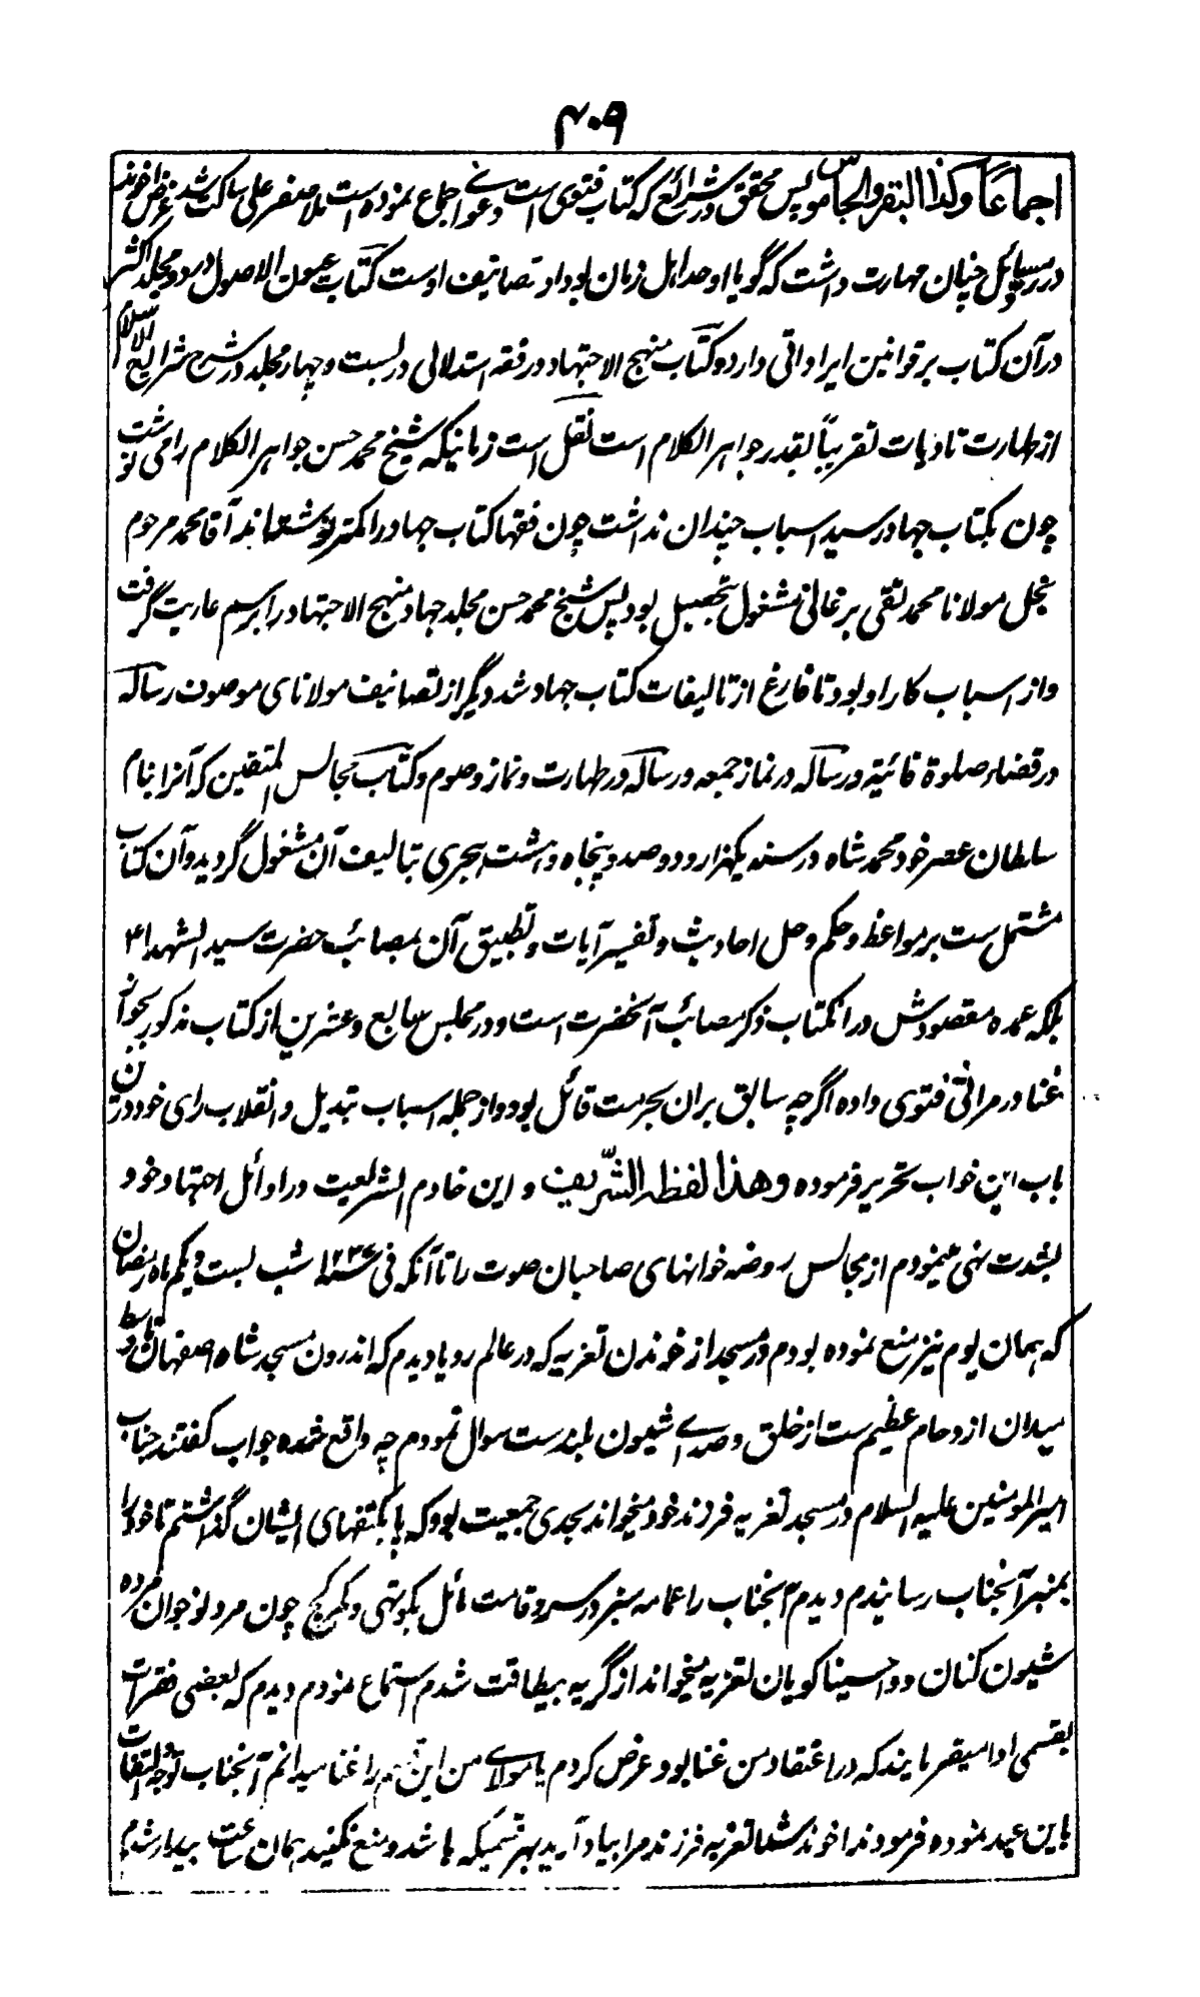 ۴۰۹
اجماعاً وکذا البقر والجاموس پس محقق در شرائع که کتاب فتوی است دعوای اجماع نموده است ملا صفر علی ساکت شد غرض آخوند
در رسائل چنان مهارت داشت که گویا اوحد اهل زمان بود او تصانیف اوست کتاب عیون الاصول در دو مجلد اکثر
در آن کتاب بر قوانین ایراداتی دارد و کتاب منهج الاجتهاد در فقه استدلالی در بست و چهار مجلد در شرح شرایع الاسلام
از طهارت تا دیات تقریباً بقدر جواهر الکلام است نقل است زمانیکه شیخ محمد حسن جواهر الکلام را می نوشت
چون بکتاب جهاد رسید اسباب چندان نداشت چون فقها کتاب جهاد را کمتر نوشته‌اند آقا محمد مرحوم
نجل مولانا محمد تقی برغانی مشغول بتحصیل بود پس شیخ محمد حسن مجلد جهاد منهج الاجتهاد را برسم عاریت گرفت
و از اسباب کار او بود تا فارغ از تالیفات کتاب جهاد شد دیگر از تصانیف مولانای موصوف رساله
در قضاء صلوة فائیته و رساله در نماز جمعه و رساله در طهارت و نماز و صوم و کتاب مجالس المتقین که آنرا بنام
سلطان عصر خود محمد شاه در سنه یکهزار و دو صد و پنجاه و هشت هجری بتالیف آن مشغول گردید و آن کتاب
مشتمل ست بر مواعظ و حکم و حل احادیث و تفسیر آیات و تطبیق آن بمصائب حضرت سید الشهدا ۴
بلکه عمده مقصودش در انکتاب ذکر مصائب آنحضرت است و در مجلس سابع و عشرین از کتاب مذکور بجواز
غنا در مراثی فتوی داده اگر چه سابق بران بحرمت قائل بود و از جمله اسباب تبدیل و انقلاب رای خود در ن
باب این خواب تحریر فرموده وهذا لفظه الشریف و این خادم الشریعت در اوائل اجتهاد خود
بشدت نهی مینمودم از مجالس روضه خوانهای صاحبان صوت را تا آنکه فی سنه ۱۲۳۶ شب بست و یکم ماه رمضان
که همان یوم نیز منع نموده بودم در مسجد از خوندن تعزیه که در عالم رویا دیدم که اندرون مسجد شاه اصفهان
میدان ازدحام عظیم ست از خلق و صدای شیون بلندست سوال نمودم چه واقع شده جواب گفتند جناب
امیر المومنین علیه السلام در مسجد تعزیه فرزند خود میخواند بحدی جمعیت بود که پا بکتفهای ایشان گذاشتم تا خود را
بمنبر آنجناب رسانیدم دیدم آنجناب را عمامه سبز در سر و قامت مائل بکوتهی و کمر کج چون مرد نوجوان مرده
شیون کنان و وا حسینا گویان تعزیه میخواند از گریه بیطاقت شدم استماع نمودم دیدم که بعضی فقرات
بقسمی ادا میفرمایند که در اعتقاد من غنا بود عرض کردم یا مولای من این قسم را غنا میدانم آنجناب توجه و التفات
باین عبد نموده فرمودند اخوند شما تعزیه فرزند مرا بپا دارید بهر قسمیکه باشد و منع نکنید همان ساعت بیدار شدم